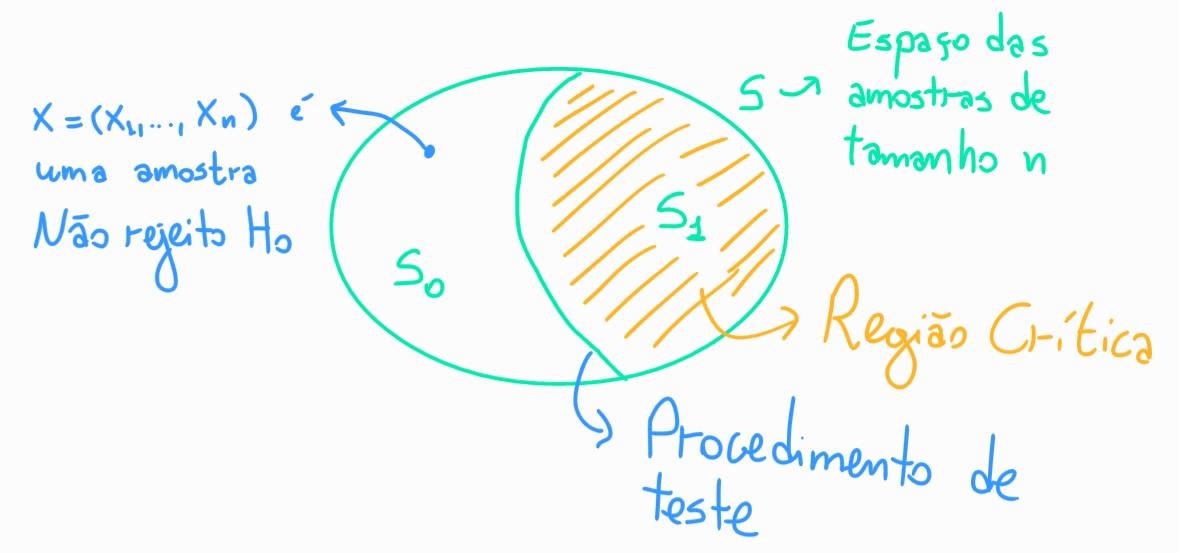 X = (X₁,..., Xₙ) é
uma amostra
Não rejeito H₀
S₀
S₁
S → Espaço das
amostras de
tamanho n
Região Crítica
Procedimento de
teste